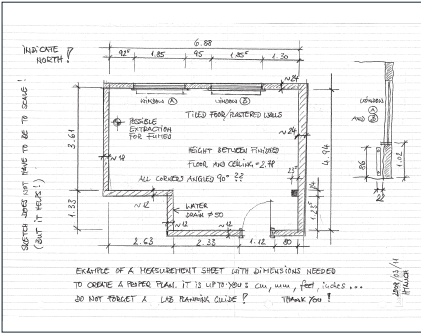 6.88
92⁵
1.85
95
1.85⁵
1.30
INDICATE
NORTH!
WINDOW Ⓐ
WINDOW Ⓑ
~24
TILED FOOR/PLASTERED WALLS
POSSIBLE
EXTRACTION
FOR FUMES
~24
HEIGHT BETWEEN FINISHED
FLOOR AND CEILING = 2.78
ALL CORNERS ANGLED 90° ??
~12
3.61
1.33
4.94
23⁵
24
1.23⁵
~12
WATER
DRAIN ø 50
~12
~12
2.63
2.33
1.12
80
WINDOW
Ⓐ
AND Ⓑ
86
1.02
22
SKETCH DOES NOT HAVE TO BE TO SCALE!
(BUT IT HELPS!)
EXAMPLE OF A MEASUREMENT SHEET WITH DIMENSIONS NEEDED
TO CREATE A PROPER PLAN. IT IS UP TO YOU: cm, mm, feet, inches...
DO NOT FORGET A LAB PLANNING GUIDE! THANK YOU!